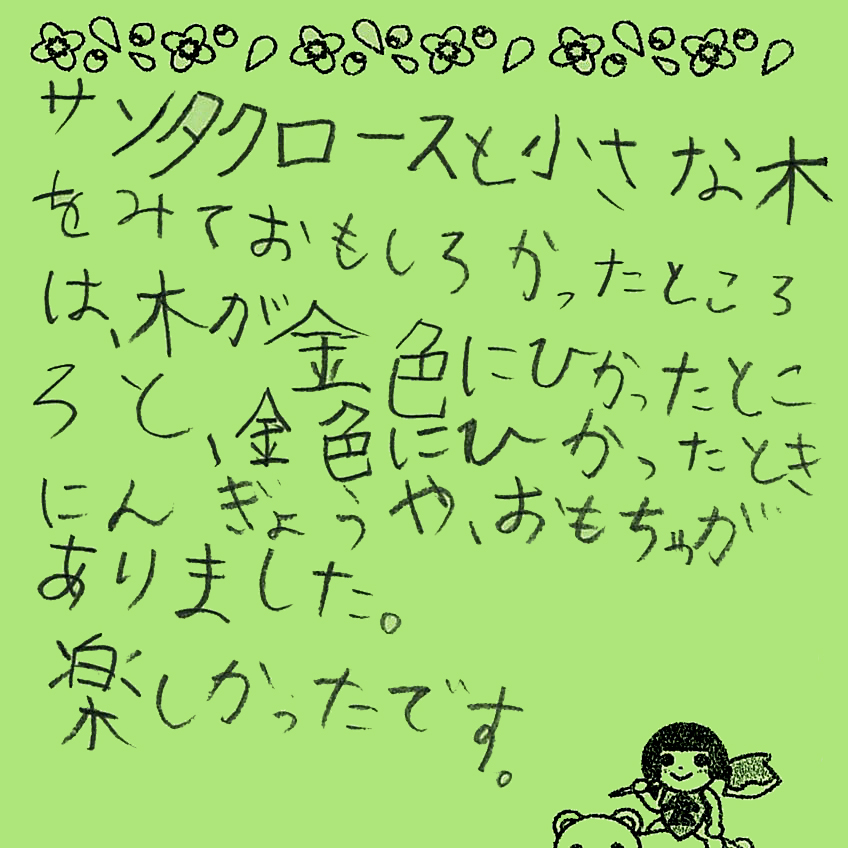 サンタクロースと小さな木
をみておもしろかったところ
は、木が金色にひかったとこ
ろと、金色にひかったとき
にんぎょうや、おもちゃが
ありました。
楽しかったです。